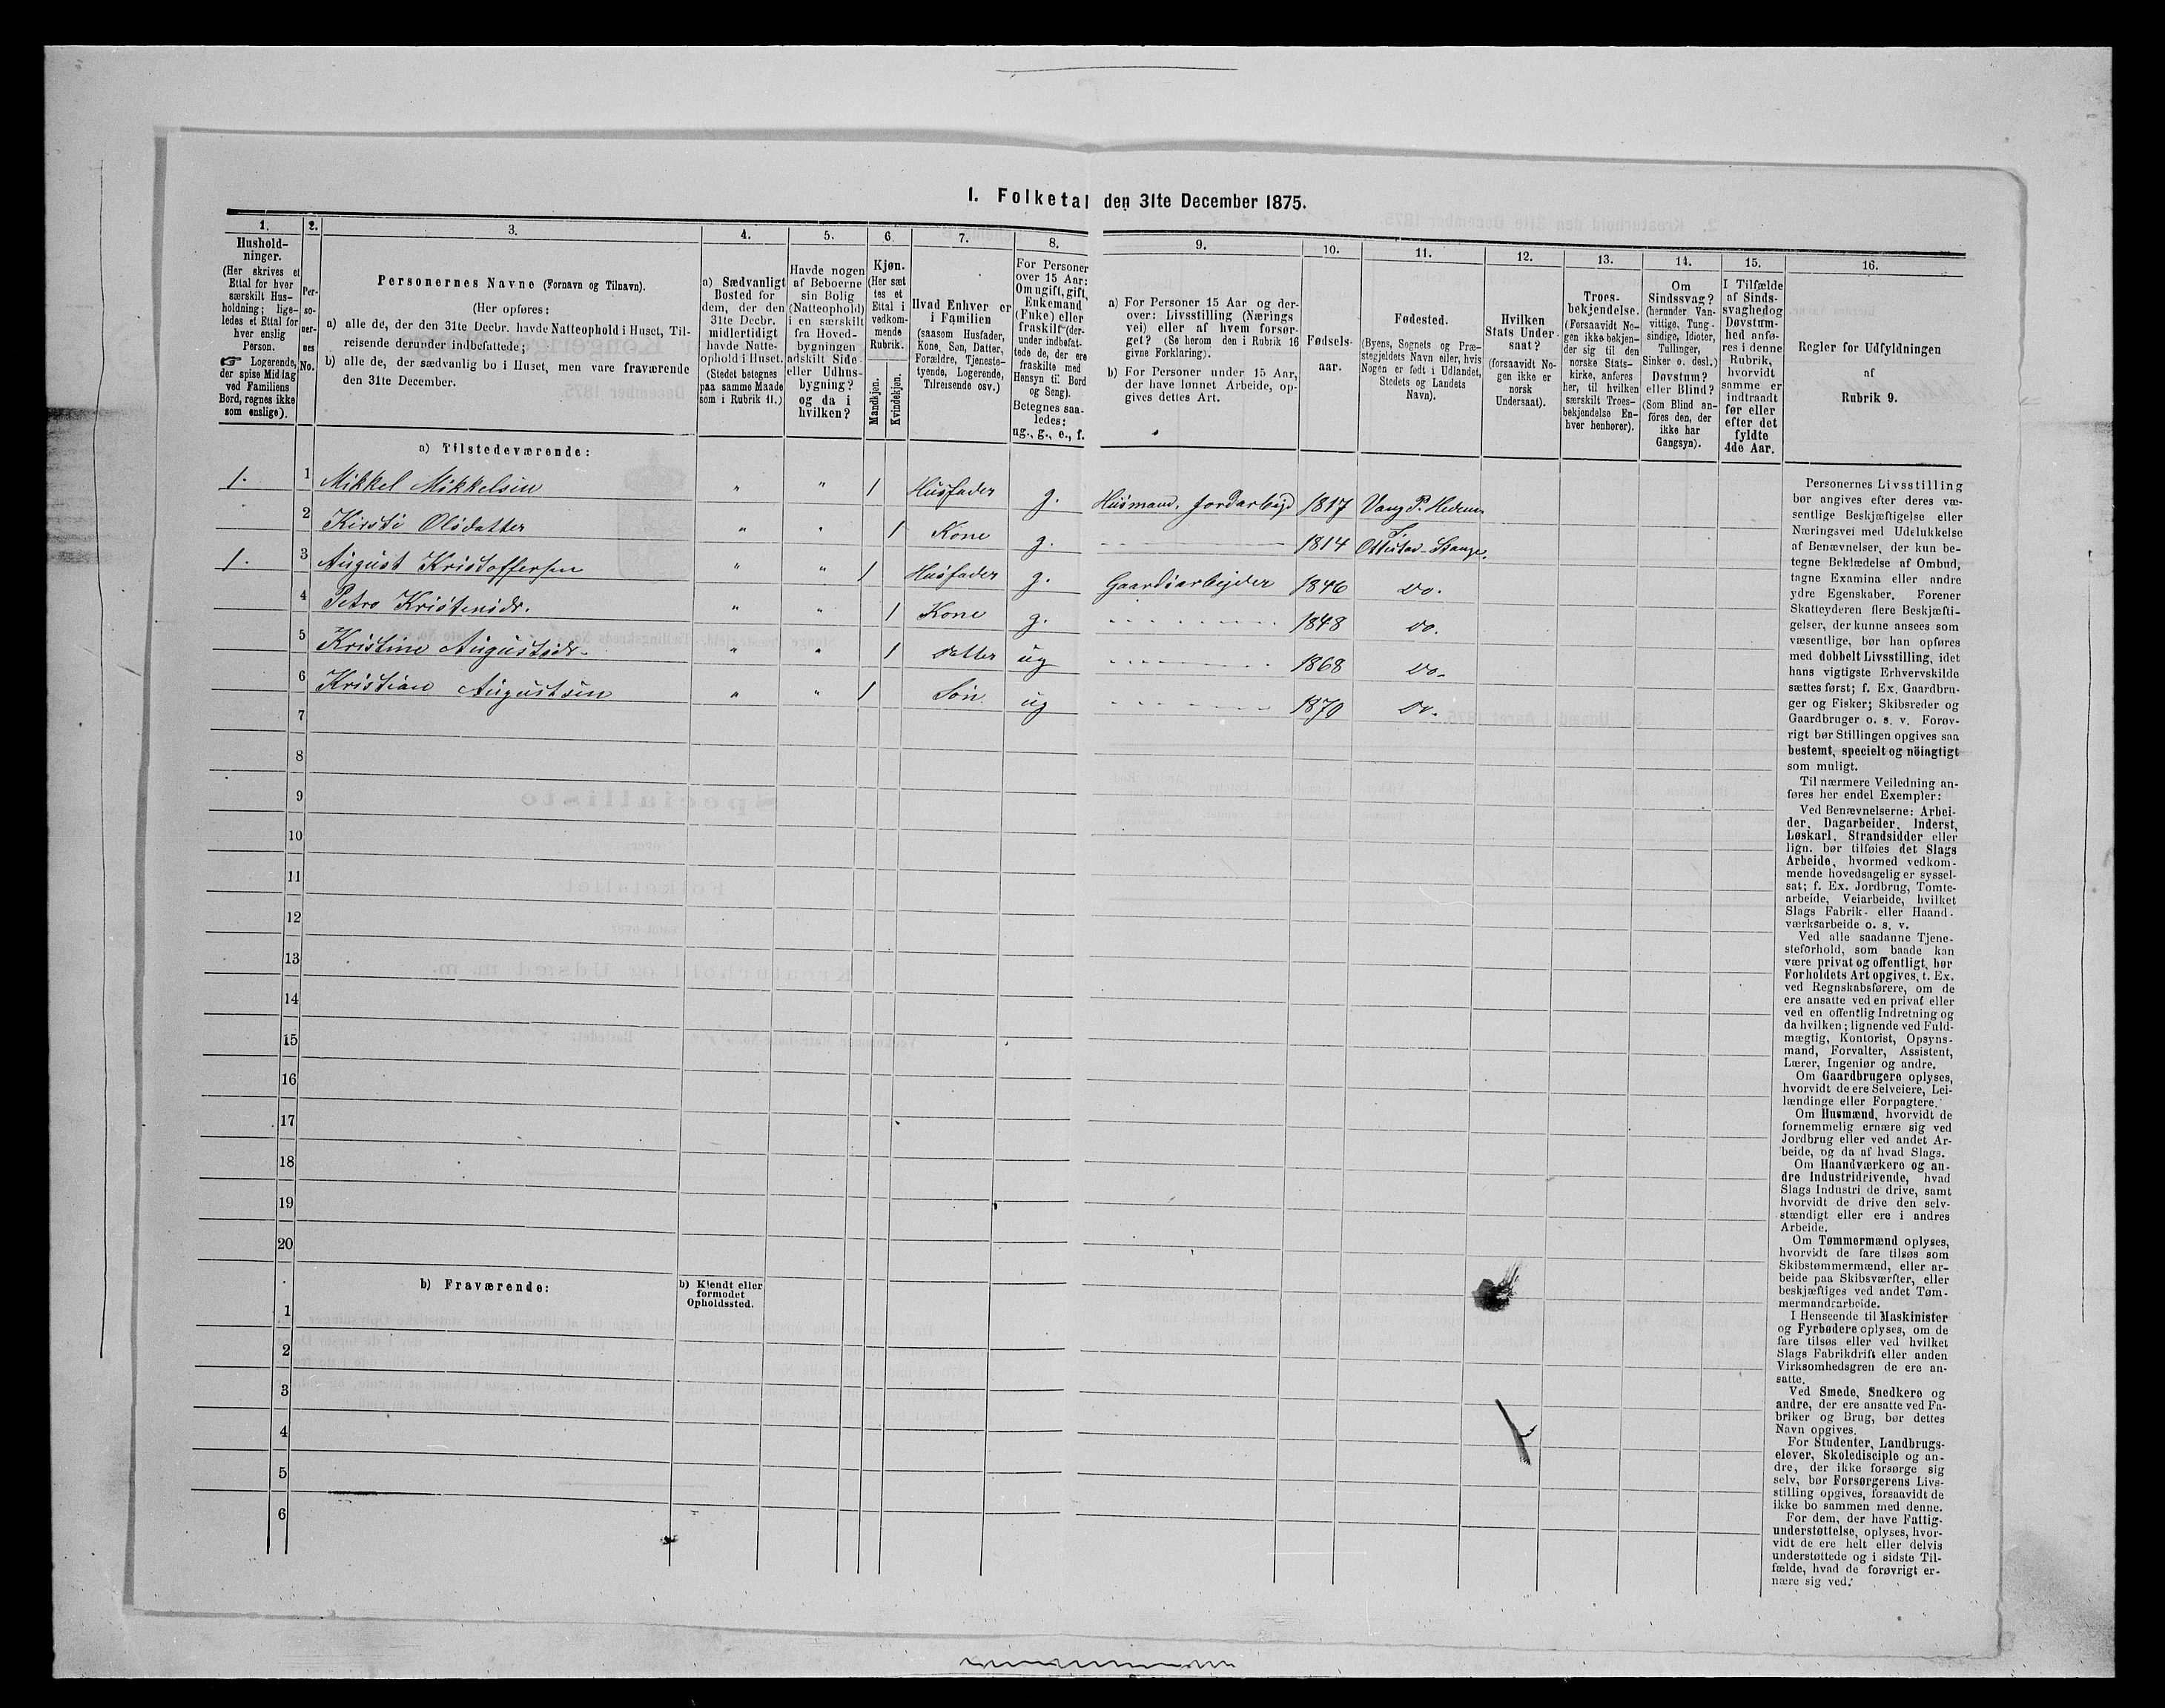 1. Folketal den 31te December 1875.
1. 2. 3. 4. 5. 6. 7. 8. 9. 10. 11. 12. 13. 14. 15. 16.
Hushold-
ninger.
(Her skrives et
Ettal for hver
særskilt Hus-
holdning; lige-
ledes et Ettal for
hver enslig
Person.
☞ Logerende,
der spise Midlag
ved Familiens
Bord, regnes ikke
som enslige).
Per-
so-
ner-
nes
No.
Personernes Navne (Fornavn og Tilnavn).
(Her opføres:
a) alle de, der den 31te Decbr. havde Natteophold i Huset, Til-
reisende derunder indbefattede;
b) alle de, der sædvanlig bo i Huset, men vare fraværende
den 31te December.
a) Sædvanligt
Bosted for
dem, der den
31te Decbr.
midlertidigt
havde Natte-
ophold i Huset.
(Stedet betegnes
paa samme Maade
som i Rubrik 11.)
Havde nogen
af Beboerne
sin Bolig
(Natteophold)
i en særskilt
fra Hoved-
bygningen
adskilt Side-
eller Udhus-
bygning?
og da i
hvilken?
Kjøn.
(Her sæt
tes et
Ettal i
vedkom-
mende
Rubrik.
Mandkjøn.
Kvindekjøn.
Hvad Enhver er
i Familien
(saasom Husfader,
Kone, Søn, Datter,
Forældre, Tjeneste-
tyende, Logerende,
Tilreisende osv.)
For Personer
over 15 Aar:
Om ugift, gift,
Enkemand
(Enke) eller
fraskilt (der-
under indbefat-
tede de, der ere
fraskilte med
Hensyn til Bord
og Seng).
Betegnes saa-
ledes:
ug., g., e., f.
a) For Personer 15 Aar og der-
over: Livsstilling (Nærings
vei) eller af hvem forsør-
get? (Se herom den i Rubrik 16
givne Forklaring).
b) For Personer under 15 Aar,
der have lønnet Arbeide, op-
gives dettes Art.
Fødsels-
aar.
Fødested.
(Byens, Sognets og Præ-
stegjeldets Navn eller, hvis
Nogen er født i Udlandet,
Stedets og Landets
Navn).
Hvilken
Stats Under-
saat?
(forsaavidt No-
gen ikke er
norsk
Undersaat).
Troes-
bekjendelse.
(Forsaavidt No-
gen ikke bekjen-
der sig til den
norske Stats-
kirke, anføres
her, til hvilken
særskilt Troes-
bekjendelse En-
hver henhører).
Om
Sindssvag?
(herunder Van-
vittige, Tung-
sindige, Idioter,
Tullinger,
Sinker o. desl.)
Døvstum?
eller Blind?
(Som Blind an-
føres den, der
ikke har
Gangsyn).
I Tilfælde
af Sinds-
svaghed og
Døvstum-
hed anfø-
res i denne
Rubrik,
hvorvidt
samme er
indtraadt
før eller
efter det
fyldte
4de Aar.
Regler for Udfyldningen
af
Rubrik 9.
a) Tilstedeværende:
1. 1 Mikkel Mikkelsen " " 1 Husfader g. Husmand, Jordarbeid 1817 Vang P. Hedem.
2 Kirsti Olsdatter " " 1 Kone g. 1814 Ottestad S. Stange.
1. 3 August Kristoffersen " " 1 Husfader g. Gaardsarbejder 1846 Do.
4 Petro Kristensdr. " " 1 Kone g. 1848 Do.
5 Kristine Augustsdr. " " 1 Datter ug 1868 Do.
6 Kristian Augustsen " " 1 Søn ug 1870 Do.
7
8
9
10
11
12
13
14
15
16
17
18
19
20
b) Fraværende:
b) Kjendt eller
formodet
Opholdssted.
1
2
3
4
5
6
Personernes Livsstilling
bør angives efter deres væ-
sentlige Beskjæftigelse eller
Næringsvei med Udelukkelse
af Benævnelser, der kun be-
tegne Beklædelse af Ombud,
tagne Examina eller andre
ydre Egenskaber. Forener
Skatteyderen flere Beskjæfti-
gelser, der kunne ansees som
væsentlige, bør han opføres
med dobbelt Livsstilling, idet
hans vigtigste Erhvervskilde
sættes først; f. Ex. Gaardbru-
ger og Fisker; Skibsreder og
Gaardbruger o. s. v. Forøv-
rigt bør Stillingen opgives saa
bestemt, specielt og nöiagtigt
som muligt.
Til nærmere Veiledning an-
føres her endel Exempler:
Ved Benævnelserne: Arbei-
der, Dagarbeider, Inderst,
Løskarl, Strandsidder eller
lign. bør tilføies det Slags
Arbeide, hvormed vedkom-
mende hovedsagelig er syssel-
sat; f. Ex. Jordbrug, Tomte-
arbeide, Veiarbeide, hvilket
Slags Fabrik- eller Haand-
værksarbeide o. s. v.
Ved alle saadanne Tjene-
steforhold, som baade kan
være privat og offentligt, bør
Forholdets Art opgives, t. Ex.
ved Regnskabsførere, om de
ere ansatte ved en privat eller
ved en offentlig Indretning og
da hvilken; lignende ved Fuld-
mægtig, Kontorist, Opsyns-
mand, Forvalter, Assistent,
Lærer, Ingeniør og andre.
Om Gaardbrugere oplyses,
hvorvidt de ere Selveiere, Lei-
lændinge eller Forpagtere.
Om Husmænd, hvorvidt de
fornemmelig ernære sig ved
Jordbrug eller ved andet Ar-
beide, og da af hvad Slags.
Om Haandværkere og an-
dre Industridrivende, hvad
Slags Industri de drive, samt
hvorvidt de drive den selv-
stændigt eller ere i andres
Arbeide.
Om Tømmermænd oplyses,
hvorvidt de fare tilsøs som
Skibstømmermænd, eller ar-
beide paa Skibsværfter, eller
beskjæftiges ved andet Tøm-
mermandsarbeide.
I Henseende til Maskinister
og Fyrbødere oplyses, om de
fare tilsøs eller ved hvilket
Slags Fabrikdrift eller anden
Virksomhedsgren de ere an-
satte.
Ved Smede, Snedkere og
andre, der ere ansatte ved Fa-
briker og Brug, bør dettes
Navn opgives.
For Studenter, Landbrugs-
elever, Skoledisciple og an-
dre, der ikke forsørge sig
selv, bør Forsørgerens Livs-
stilling opgives, forsaavidt de
ikke bo sammen med denne.
For dem, der have Fattig-
understøttelse, oplyses, hvor-
vidt de ere helt eller delvis
understøttede og i sidste Til-
fælde, hvad de forøvrigt er-
nære sig ved.